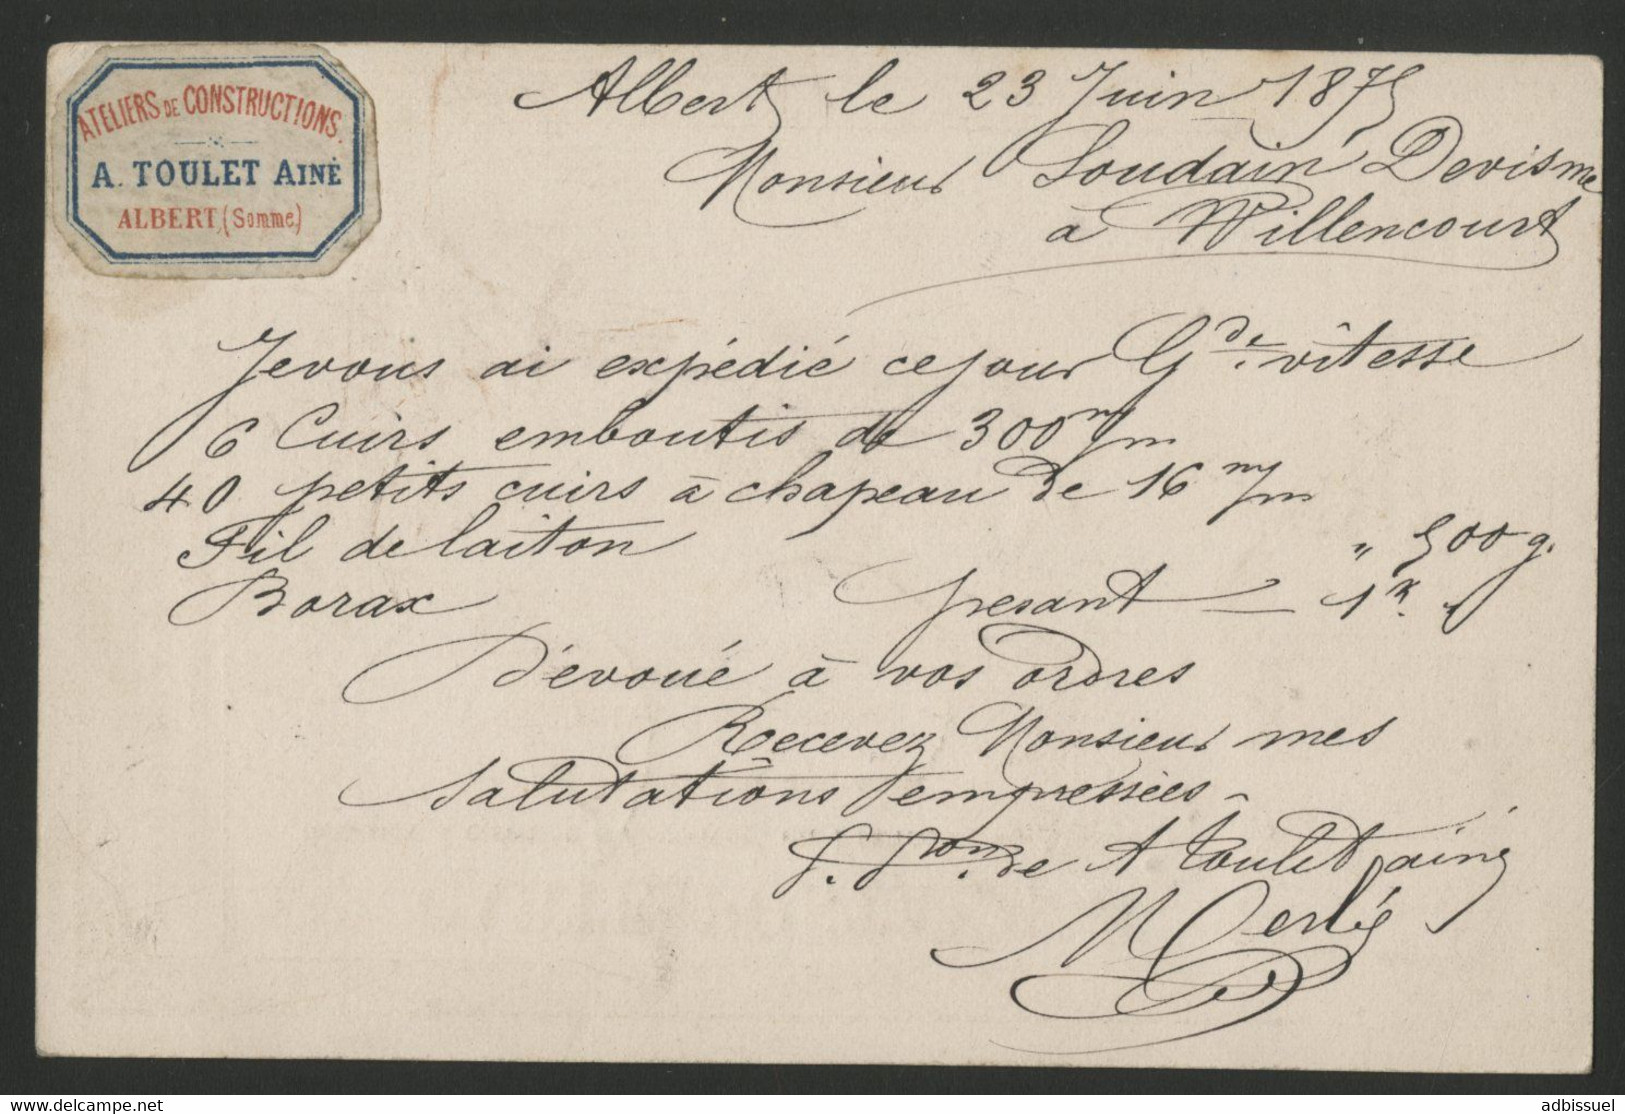 ATELIERS DE CONSTRUCTIONS.
A. TOULET AINÉ
ALBERT, (Somme)
Albert le 23 Juin 1875
Monsieur Soudain Devisme
à Willencourt
Je vous ai expédié ce jour Gde. vitesse
6 Cuirs emboutis de 300 m/m
40 petits cuirs à chapeau de 16 m/m
Fil de laiton " 500 g.
Borax pesant — 1 k. "
Dévoué à vos ordres
Recevez Monsieur mes
Salutations empressées
P. Pron. de A Toulet ainé
delcampe.net
adbissuel